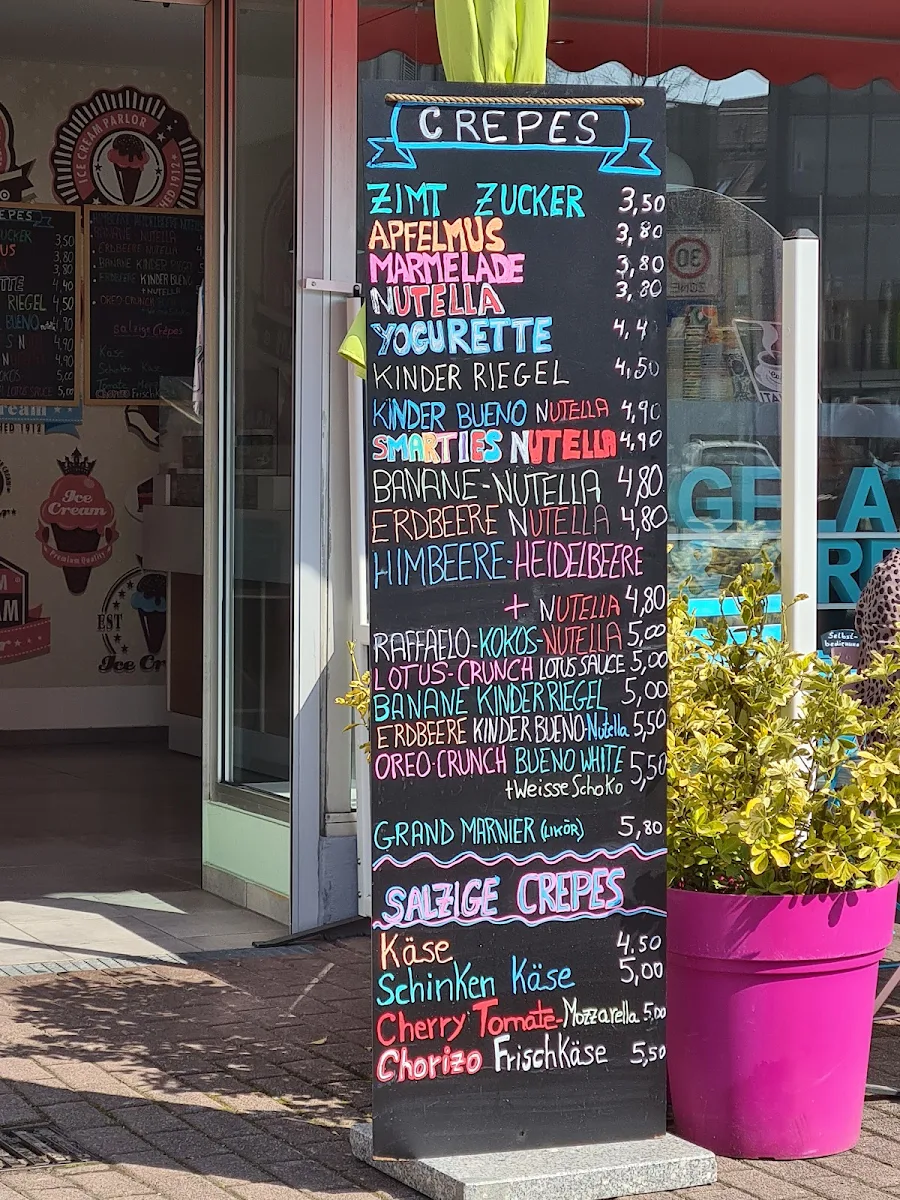 CREPES
ZIMT ZUCKER 3,50
APFELMUS 3,80
MARMELADE 3,80
NUTELLA 3,80
YOGURETTE 4,4
KINDER RIEGEL 4,50
KINDER BUENO NUTELLA 4,90
SMARTIES NUTELLA 4,90
BANANE-NUTELLA 4,80
ERDBEERE NUTELLA 4,80
HIMBEERE-HEIDELBEERE
+ NUTELLA 4,80
RAFFAELO-KOKOS-NUTELLA 5,00
LOTUS-CRUNCH LOTUS SAUCE 5,00
BANANE KINDERRIEGEL 5,00
ERDBEERE KINDER BUENO-Nutella 5,50
OREO-CRUNCH BUENO WHITE 5,50
+Weisse Schoko
GRAND MARNIER (LIKÖR) 5,80
SALZIGE CREPES
Käse 4.50
Schinken Käse 5,00
Cherry Tomate-Mozzarella 5,00
Chorizo Frischkäse 5,50
ICE CREAM PARLOR
Ice Cream
Premium Quality
EST
Salzige Crêpes
Käse
30
ZONE
GELA
Selbst-
bedienung